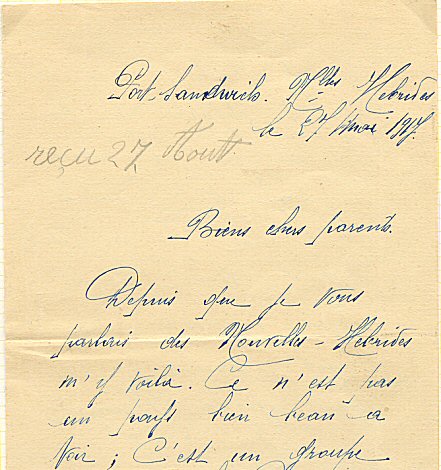 Port-Sandwich. Nlles Hebrides
le 27 mai 1917.
reçu 27 Aout.
Biens chers parents.
Depuis que je vous
parlais des Nouvelles-Hebrides
m'y voilà. Ce n'est pas
un pays bien beau a
voir ; C'est un groupe